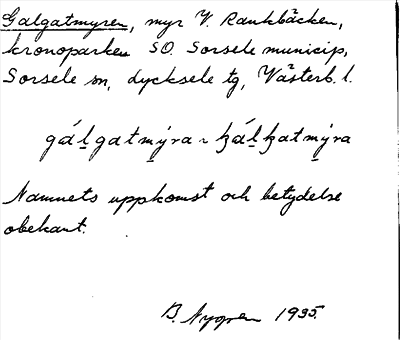 Galgatmyren, myr V. Rankbäcken,
kronoparken SO. Sorsele municip,
Sorsele sn, Lycksele tg, Västerb. l.
gáḻgatmýra ~ káḻkatmýra
Namnets uppkomst och betydelse
obekant.
B. Nygren 1935.